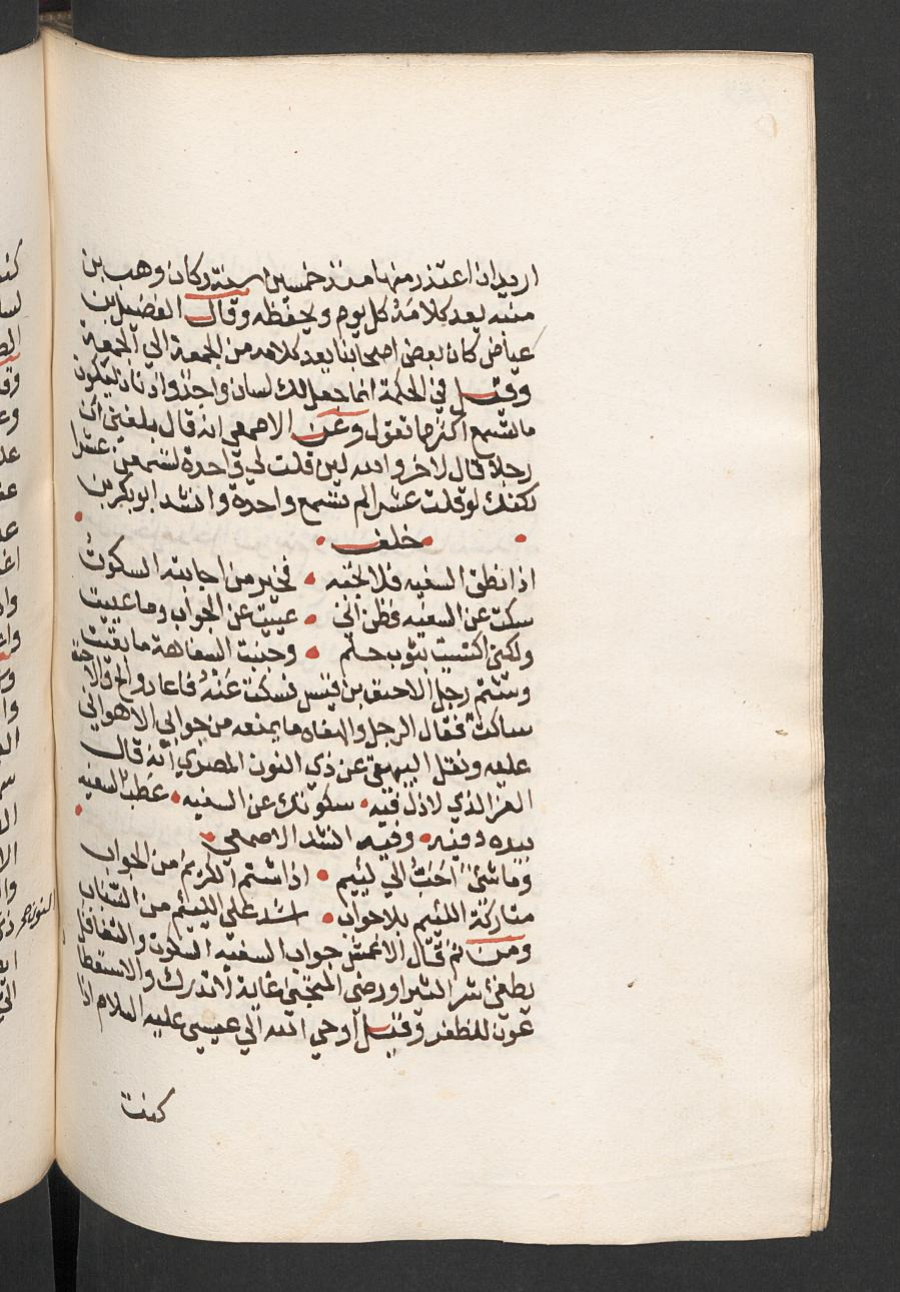 اريد ان اعتذر منها منذ خمسين سنة وكان وهب بن
منبه يعد كلامه كل يوم ويحفظه وقال الفضيل بن
عياض كان بعض اصحابنا يعد كلامه من الجمعة الي الجمعة
وقيل في الحكمة انما جعل لك لسان واحد واذنان ليكون
ما تسمع اكثر مما تقول وعن الاصمعي انه قال بلغني ان
رجلا قال لاخر والله لين قلت لي واحدة لتسمعن عشرا
لكنك لو قلت عشرا لم تسمع واحدة وانشد ابو بكر بن
خلف
اذا نطق السفيه فلا تجبه • فخير من اجابته السكوت
سكت عن السفيه فظن اني • عييت عن الجواب وما عييت
ولكني اكتسيت بثوب حلم • وجنبت السفاهة ما بقيت
وشتم رجل الاحنف بن قيس فسكت عنه فاعاد والح والاحنف
ساكت فقال الرجل والهفاه ما يمنعه من جوابي الا هواني
عليه ونقل البيهقي عن ذي النون المصري انه قال
العز الذي لا ذل فيه • سكوتك عن السفيه • عطب السفيه
بيده وفيه • وفيه انشد الاصمعي •
وما شئ احب الي لئيم • اذا شتم الكريم من الجواب
متاركة اللئيم بلا جواب • اشد علي اللئيم من السباب
ومن ثم قال الاعمش جواب السفيه السكوت والتغافل
يطفئ شرا كثيرا ورضي المتجني غاية لا تدرك والاستعطاف
عون للظفر وقيل اوحي الله الي عيسي عليه السلام اذا
كنت